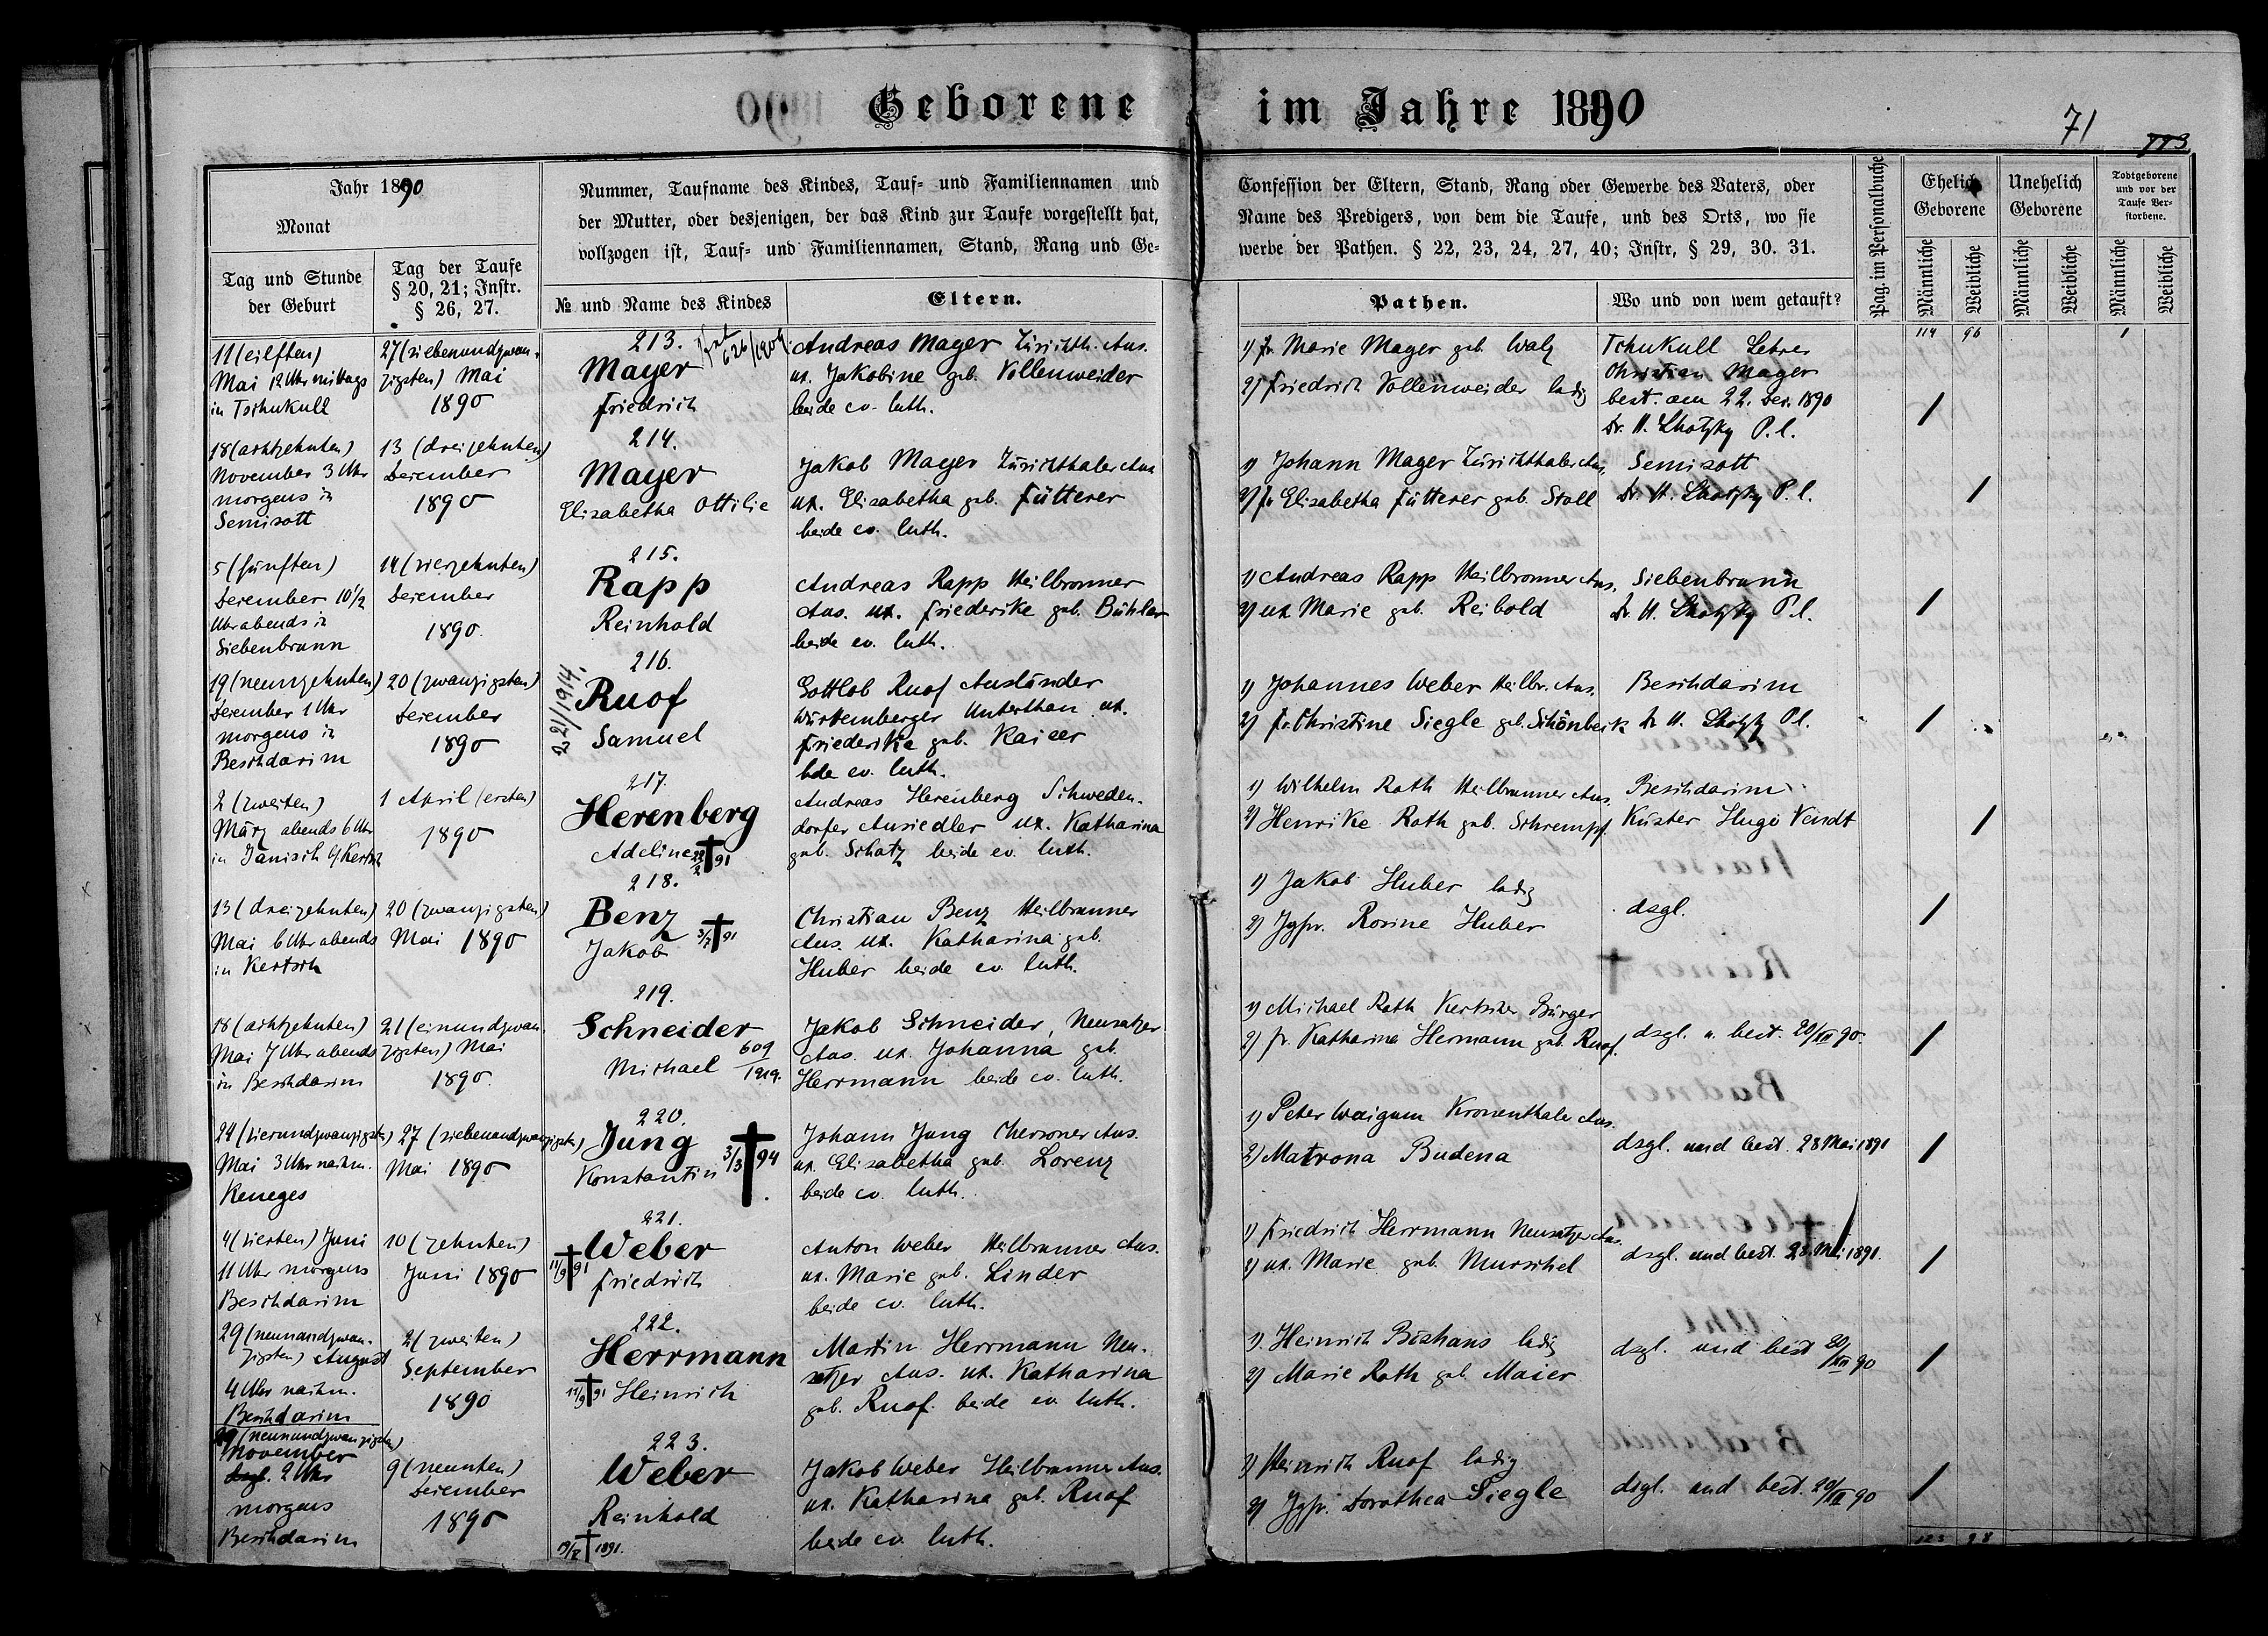 Geborene im Jahre 1890
71
Jahr 1890
Monat
Tag und Stunde
der Geburt
Tag der Taufe
§ 20, 21; Instr.
§ 26, 27.
Nummer, Taufname des Kindes, Tauf- und Familiennamen und
der Mutter, oder desjenigen, der das Kind zur Taufe vorgestellt hat,
vollzogen ist, Tauf- und Familiennamen, Stand, Rang und Ge-
№ und Name des Kindes
Eltern.
Confession der Eltern, Stand, Rang oder Gewerbe des Vaters, oder
Name des Predigers, von dem die Taufe, und des Orts, wo sie
werbe der Pathen. § 22, 23, 24, 27, 40; Instr, § 29, 30. 31.
Pathen.
Wo und von wem getauft?
Pag. im Personalbuche
Ehelich
Geborene
Unehelich
Geborene
Todtgeborene
und vor der
Taufe Ver-
storbene.
Männliche
Weibliche
Männliche
Weibliche
Männliche
Weibliche
114 96 1
11 (eilften)
Mai 12 Uhr mittags
in Tschukull
27 (siebenundzwan-
zigsten) Mai
1890
213.
626/1909.
Mayer
Friedrich
Andreas Mayer Zürichth. Ans.
ux. Jakobine geb. Vollenweider
beide ev. luth.
1) Fr. Marie Mayer geb. Walz
2) Friedrich Vollenweider ledig
Tschukull Lehrer
Christian Mayer
best. am 22. Dec. 1890
Dr. H. Lhotzky P. l.
/
18 (achtzehnten)
November 3 Uhr
morgens in
Semisott
13 (dreizehnten)
December
1890
214.
Mayer
Elisabetha Ottilie
Jakob Mayer Zürichthaler Ans
ux. Elisabetha geb. Fütterer
beide ev. luth.
1) Johann Mayer Zürichthaler Ans.
2) Fr Elisabetha Fütterer geb. Stoll
Semisott
Dr. H. Lhotzky P. l.
/
5 (fünften)
December 10 1/2
Uhr abends in
Siebenbrunn
14 (vierzehnten)
December
1890.
215.
Rapp
Reinhold
Andreas Rapp Heilbronner
Ans. ux. Friederike geb. Bühler
beide ev. luth.
1) Andreas Rapp Heilbronner Ans.
2) ux Marie geb. Reibold
Siebenbrunn
Dr. H. Lhotzky P. l.
/
19 (neunzehnten)
December 1 Uhr
morgens in
Beschdarim
20 (zwanzigsten)
December
1890
221/1914.
216.
Ruof
Samuel
Gottlob Ruof Ausländer
Würtemberger Unterthan ux.
Friederike geb. Kaiser
bde ev. luth.
1) Johannes Weber Heilbr. Ans.
2) Fr. Christine Siegle geb. Schönbeck
Beschdarim
Dr H. Lhotzky P. l.
/
2 (zweiten)
März abends 6 Uhr
in Janisch b/ Kertsch
1 April (ersten)
1890
217.
Herenberg
Adeline 22/2 † 91
Andreas Herenberg Schweden-
dorfer Ansiedler ux. Katharina
geb. Schatz beide ev. luth.
1) Wilhelm Roth Heilbrunner Ans.
2) Henrike Roth geb. Schrempf
Beschdarim
Küster Hugo Vendt
/
13 (dreizehnten)
Mai 6 Uhr abends
in Kertsch
20 (zwanzigsten)
Mai 1890
218.
Benz
Jakob 3/7 † 91
Christian Benz Heilbrunner
Ans. ux. Katharina geb.
Huber beide ev. luth.
1) Jakob Huber ledig
2) Jgfr. Rosine Huber
dsgl.
/
18 (achtzehnten)
Mai 7 Uhr abends
in Beschdarim
21 (einundzwan-
zigsten) Mai
1890.
219.
Schneider
Michael 609/1919.
Jakob Schneider, Neusatzer
Ans. ux. Johanna geb.
Herrmann beide ev. luth.
1) Michael Roth Kertscher Bürger
2) Fr. Katharina Hermann geb. Ruof.
dsgl. u. best. 20/XII 90.
/
24 (vierundzwanzigsten)
Mai 3 Uhr nachm.
Keneges
27 (siebenundzwanzigsten)
Mai 1890
220.
Jung
Konstantin 3/3 † 94
Johann Jung Chersoner Ans.
ux. Elisabetha geb. Lorenz
beide ev. luth.
1) Peter Waigum Kronenthaler Ans.
2) Matrona Budena
dsgl. und best. 28 Mai 1891
/
4 (vierten) Juni
11 Uhr morgens
Beschdarim
10 (zehnten)
Juni 1890
221.
Weber
11/9 † 91
Friedrich
Anton Weber Heilbrunner Ans.
ux. Marie geb. Linder
beide ev. luth.
1) Friedrich Herrmann Neusatzer Ans.
2) ux. Marie geb. Murschel
dsgl. und best. 28. Mai 1891.
/
29 (neunundzwan-
zigsten) August
4 Uhr nachm.
Beschdarim
2 (zweiten)
September
1890
222.
Herrmann
11/9 † 91 Heinrich
Martin Herrmann Neu-
satzer Ans. ux. Katharina
geb. Ruof. beide ev. luth.
1). Heinrich Bishans ledig
2) Marie Roth geb. Maier
dsgl. und best 20/XII 90
/
29 (neunundzwanzigsten)
November
dsgl. 2 Uhr
morgens
Beschdarim
9 (neunten)
December
1890
223.
Weber
Reinhold
19/X † 1891.
Jakob Weber Heilbrunner Ans.
ux. Katharina geb. Ruof
beide ev. luth.
1) Heinrich Ruof ledig
2) Jgfr. Dorothea Siegle
dsgl. und best. 20/XII 90
/
123 98